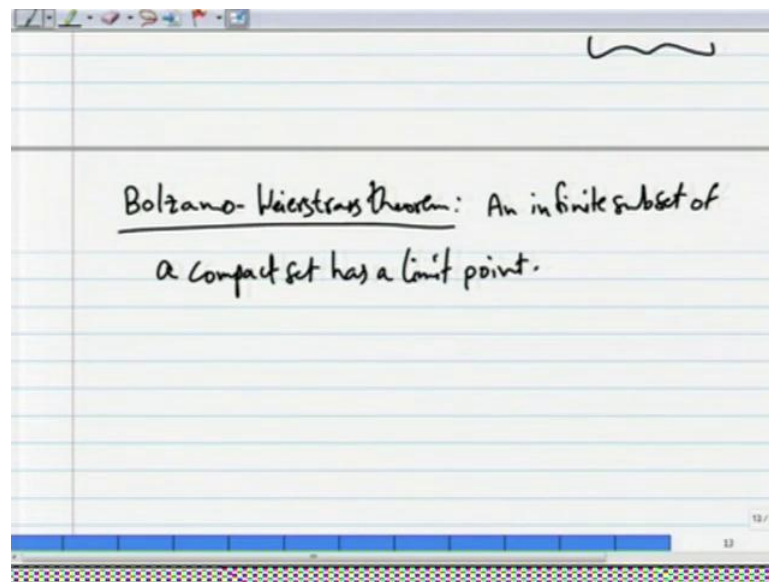 Bolzano-Weierstrass theorem: An infinite subset of
a compact set has a limit point.
13/
13